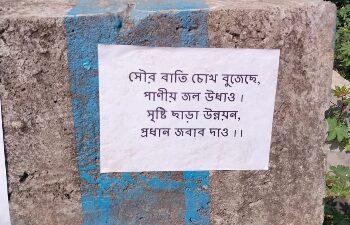 সৌর বাতি চোখ বুজেছে,
পাণীয় জল উধাও ।
সৃষ্টি ছাড়া উন্নয়ন,
প্রধান জবাব দাও ।।